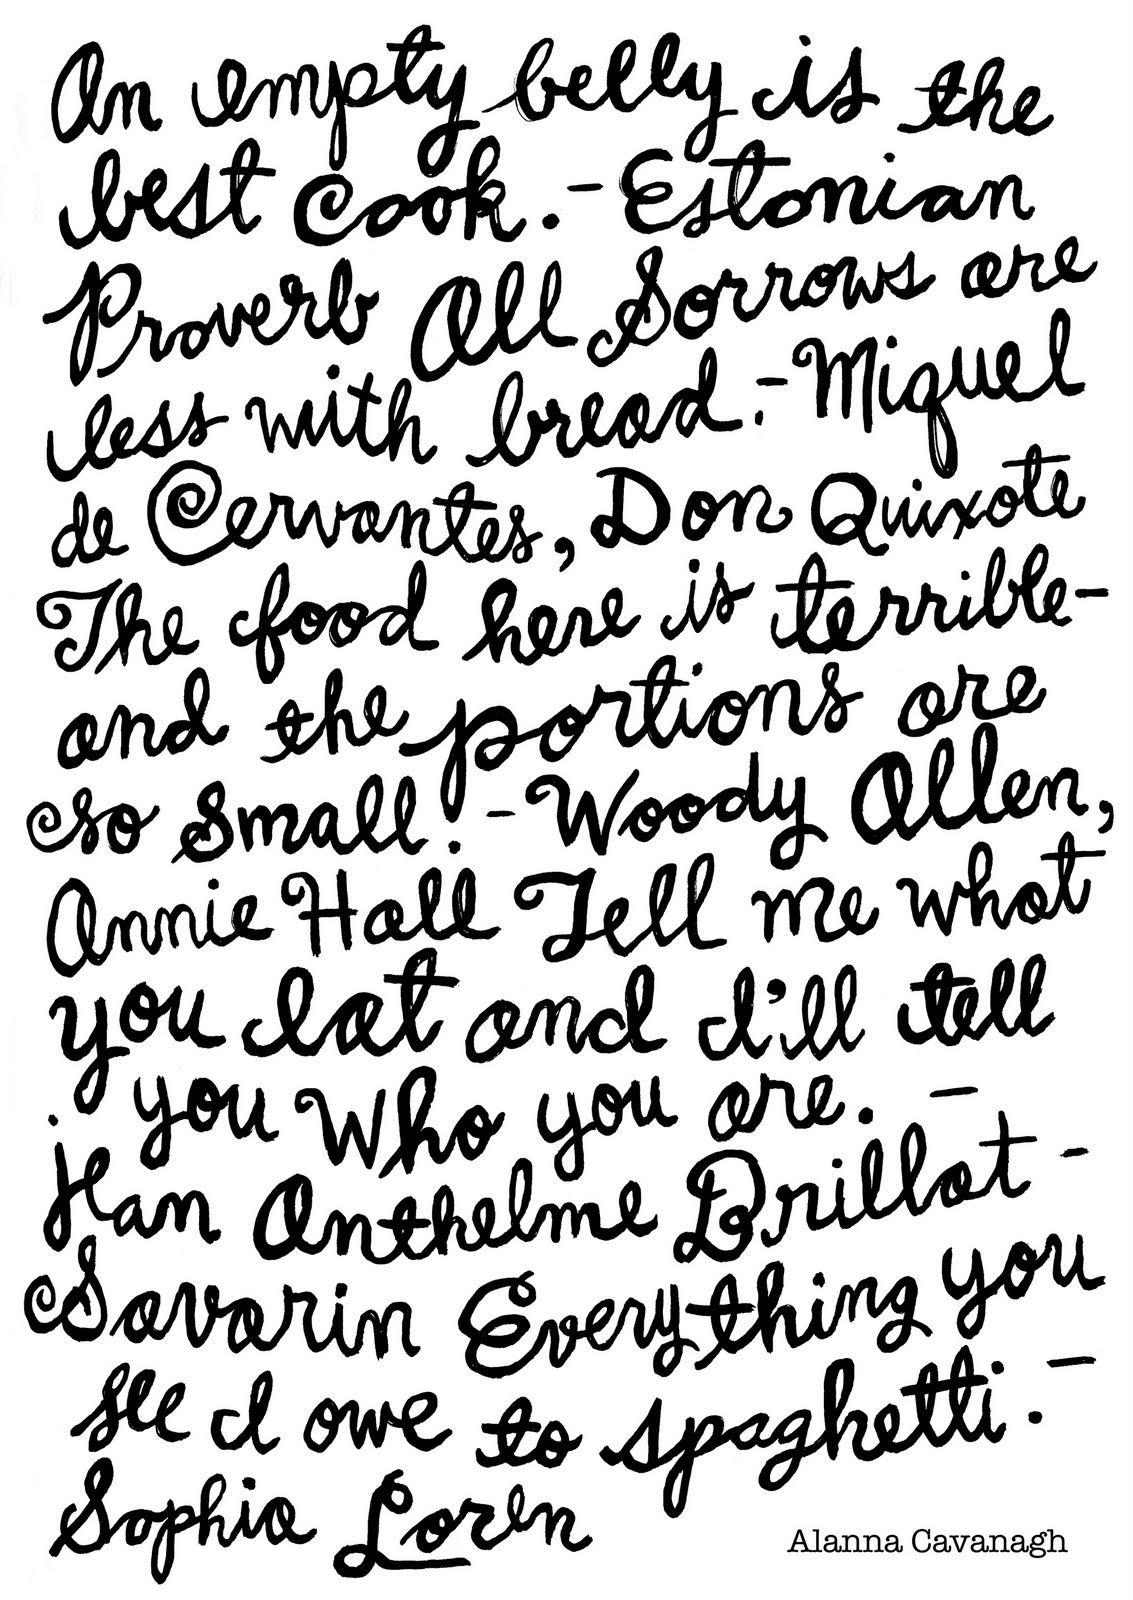 An empty belly is the
best Cook. - Estonian
Proverb All Sorrows are
less with bread. - Miquel
de Cervantes, Don Quixote
The food here is terrible -
and the portions are
so small! - Woody Allen,
Annie Hall Tell me what
you eat and I'll tell
you Who you are. -
jean Anthelme Brillat -
Savarin Everything you
see I owe to spaghetti. -
Sophia Loren
Alanna Cavanagh